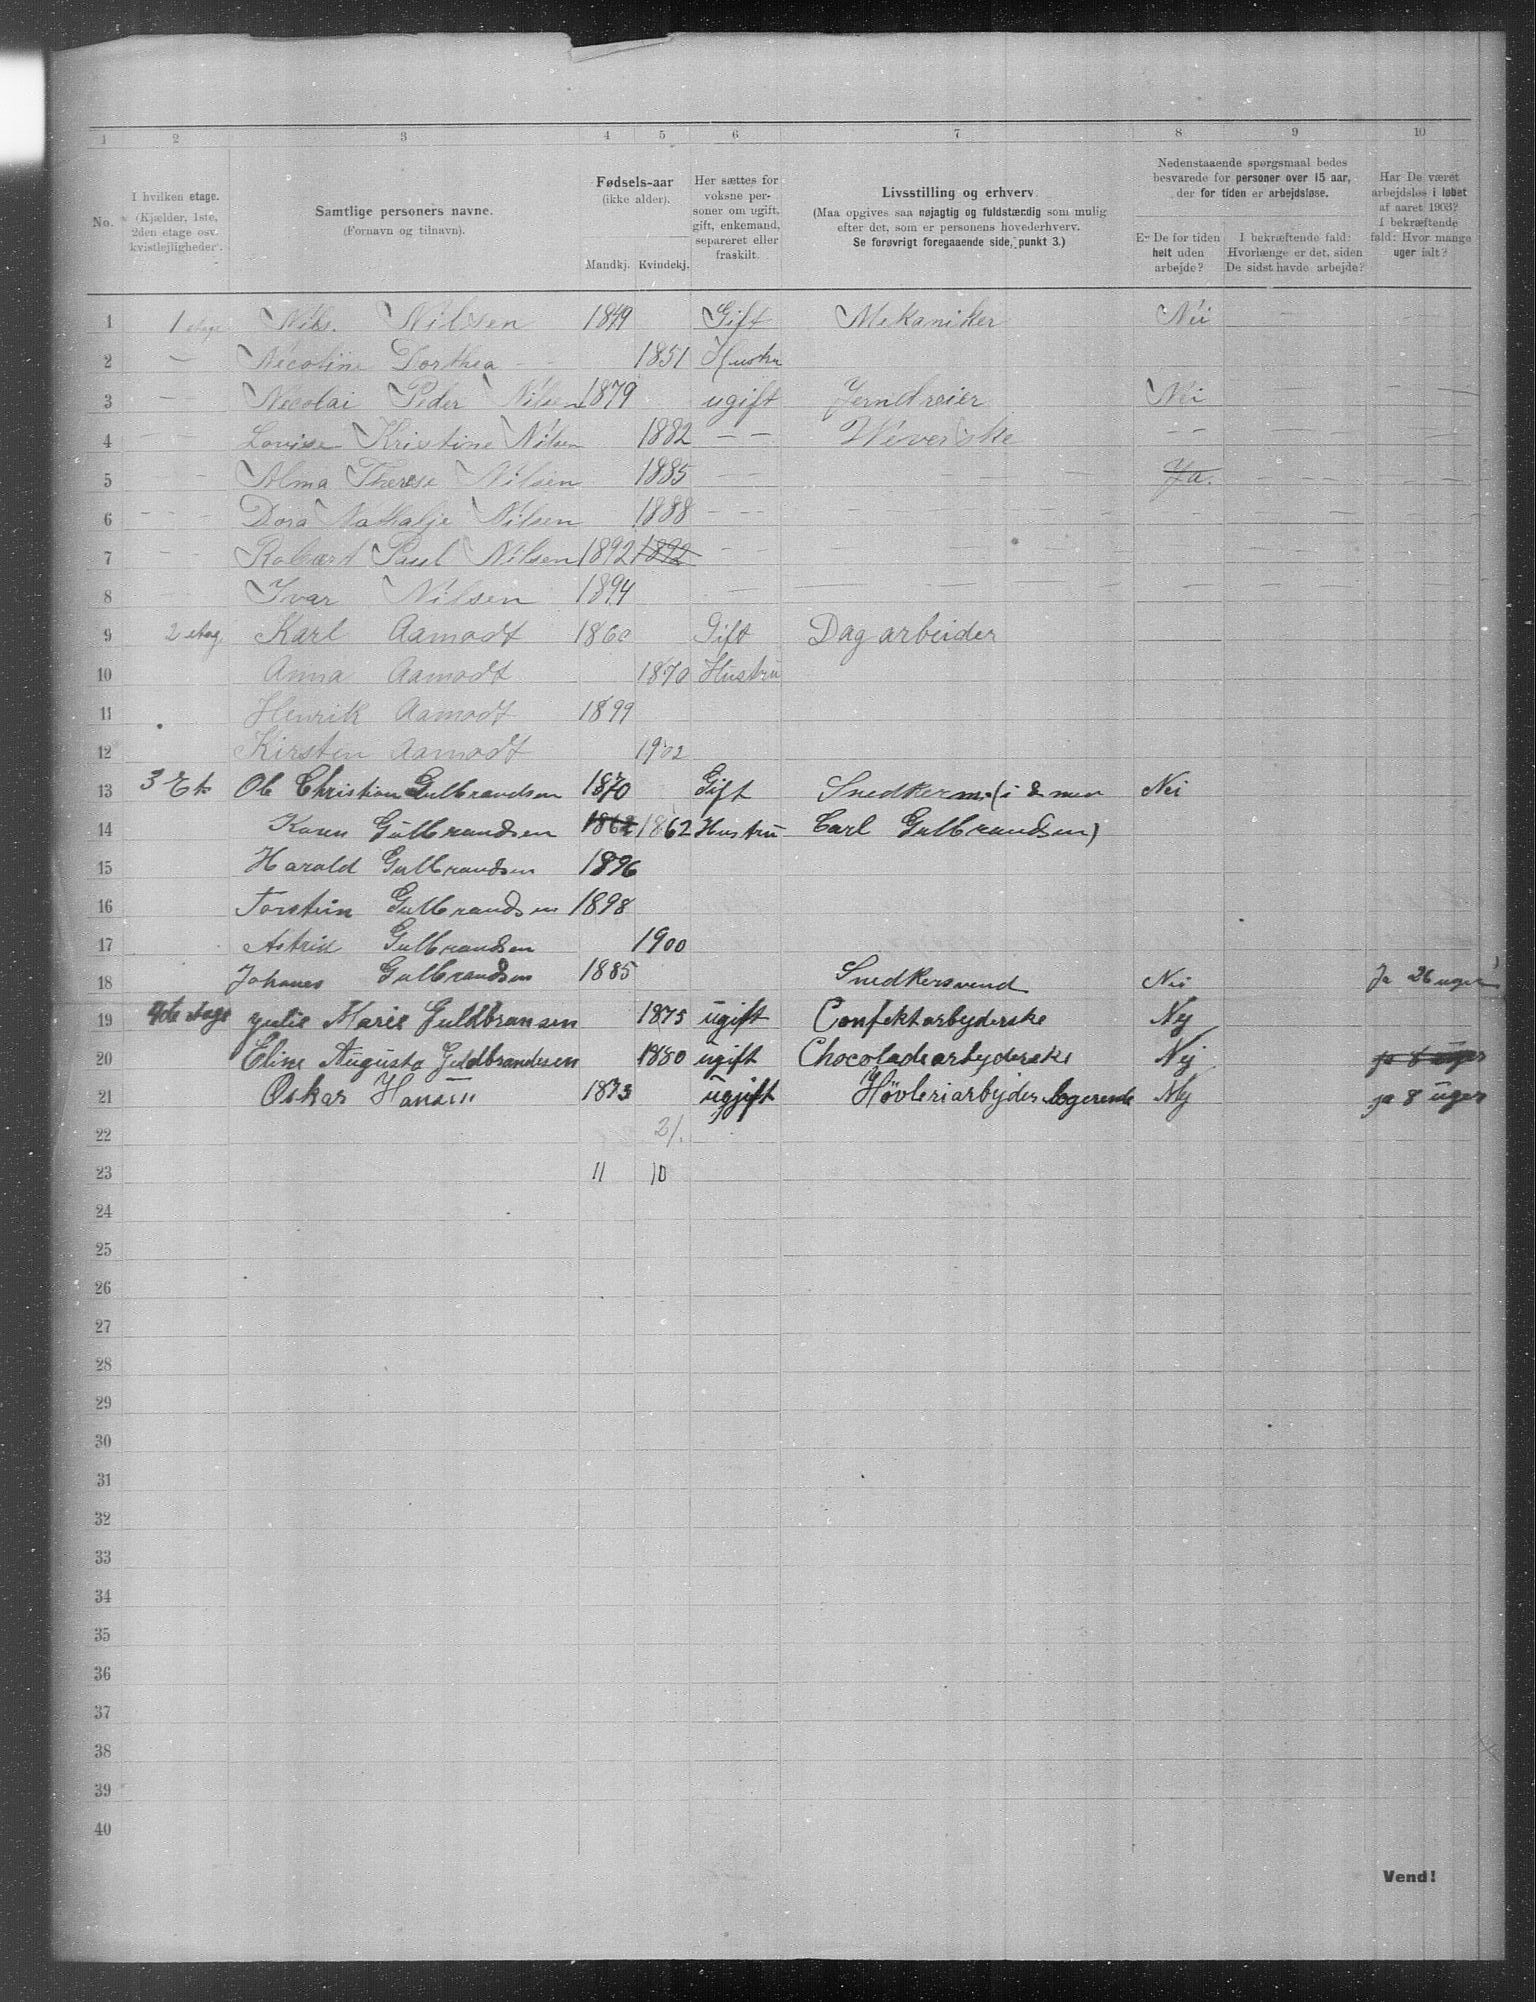 1 2 3 4 5 6 7 8 9 10
No.
I hvilken etage.
(Kjælder, 1ste,
2den etage osv.
kvistlejligheder).
Samtlige personers navne.
(Fornavn og tilnavn).
Fødsels-aar
(ikke alder).
Mandkj. Kvindekj.
Her sættes for
voksne per-
soner om ugift,
gift, enkemand,
separeret eller
fraskilt.
Livsstilling og erhverv.
(Maa opgives saa nøjagtig og fuldstændig som mulig
efter det, som er personens hovederhverv.
Se forøvrigt foregaaende side, punkt 3.)
Nedenstaaende spørgsmaal bedes
besvarede for personer over 15 aar,
der for tiden er arbejdsløse.
Er De for tiden
helt uden
arbejde?
I bekræftende fald:
Hvorlænge er det, siden
De sidst havde arbejde?
Har De været
arbejdsløs i løbet
af aaret 1903?
I bekræftende
fald: Hvor mange
uger ialt?
1 1 etage Nils. Nilsen 1849 Gift Mekaniker Nei - -
2 - Nicoline Dorthea - - 1851 Hustru
3 - Nicolai Peder Nilsen 1879 ugift Jerndreier Nei
4 - - Lovise Kristine Nilsen 1882 - - Veverske - -
5 - Alma Therese Nilsen 1885 - - - Ja. - - - -
6 - - - Dora Nathalje Nilsen 1888 - -
7 - - Robart Paul Nilsen 1892 1892 - -
8 - - Ivar Nilsen 1894 -
9 2 etag. Karl Aamodt 1860 Gift Dagarbeider
10 Anna Aamodt 1870 Hustru
11 Henrik Aamodt 1899
12 Kirsten Aamodt 1902
13 3 Et. Ole Christian Gulbrandsen 1870 Gift Snedkerm. (i
14 Karen Gulbrandsen 1862 1862 Hustru Carl Gulbrandsen)
15 Harald Gulbrandsen 1896
16 Torstein Gulbrandsen 1898
17 Astrid Gulbrandsen 1900
18 Johanes Gulbrandsen 1885 Snedkersvend Nei Ja 26 uger
19 4de etage Julie Marie Guldbransen 1875 ugift Confektarbyderske Nej
20 Eline Augusta Guldbrandesen 1880 ugift Chocoladearbyderske Nej ja 8 uger
21 Oskar Hansen 1873 ugjift Høvleriarbyder logerende Nej ja 8 uger
22 21.
23 11 10
24
25
26
27
28
29
30
31
32
33
34
35
36
37
38
39
40
Vend!